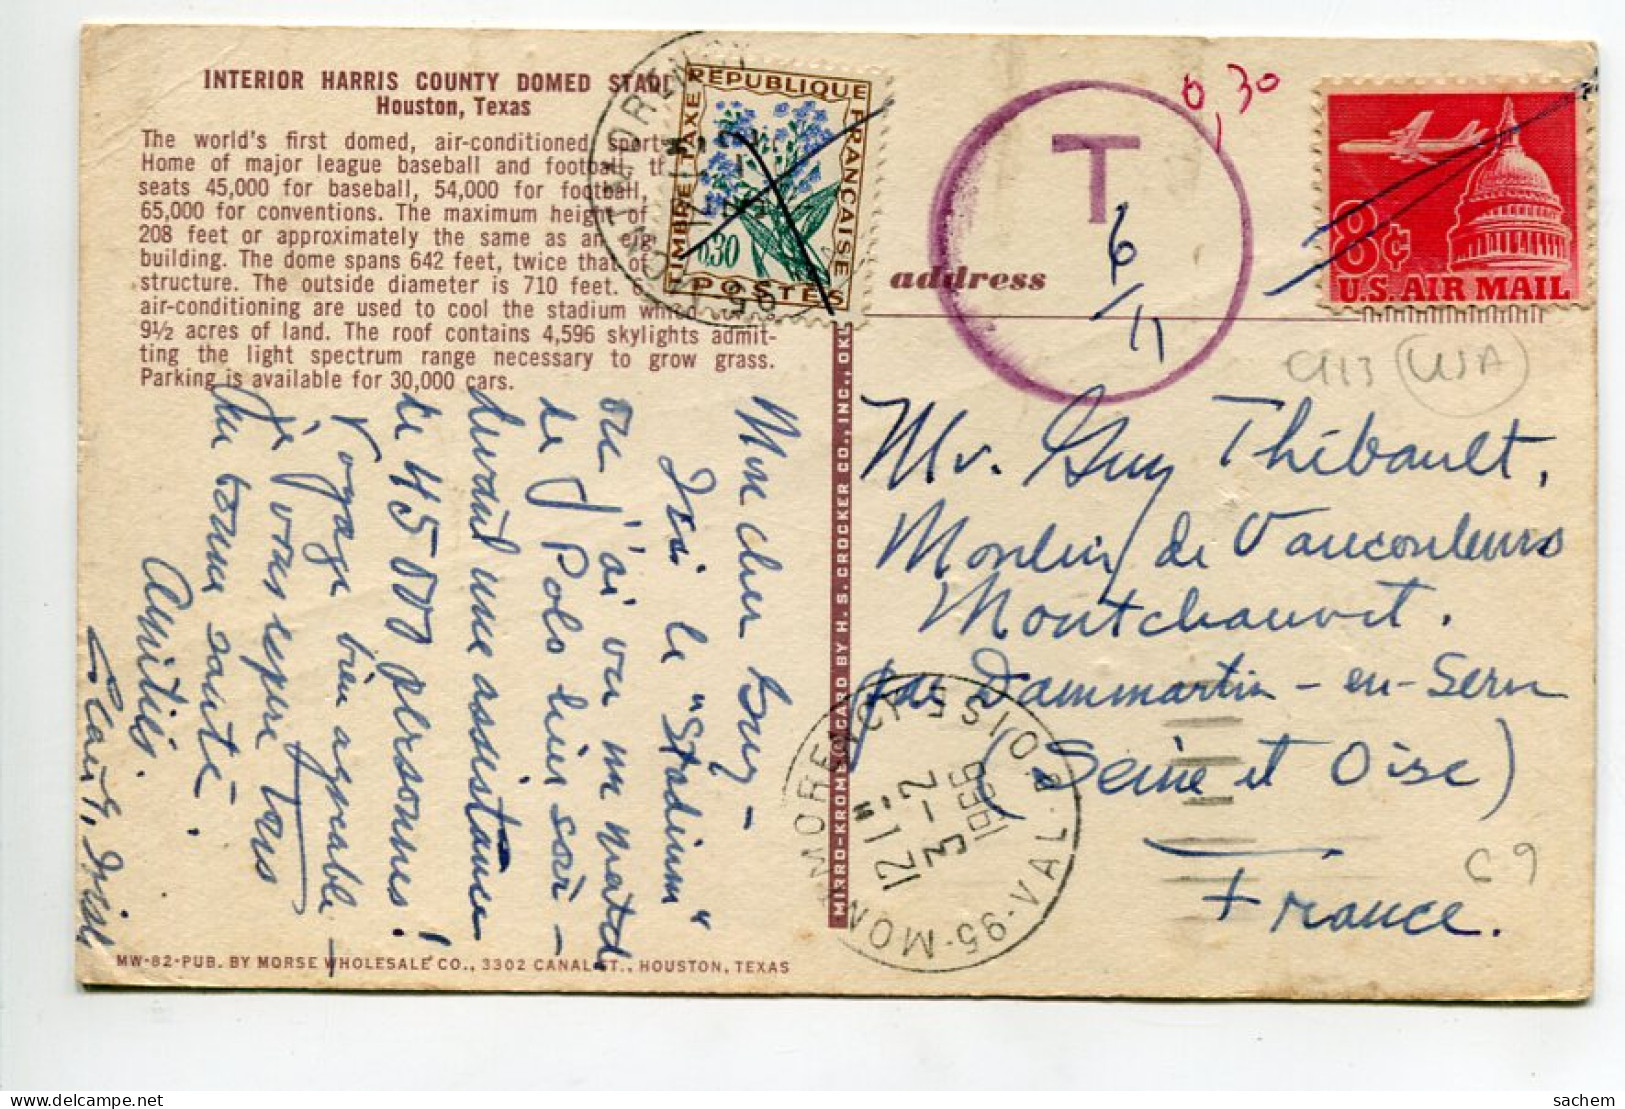 INTERIOR HARRIS COUNTY DOMED STADI
Houston, Texas
The world's first domed, air-conditioned sport
Home of major league baseball and football th
seats 45,000 for baseball, 54,000 for football,
65,000 for conventions. The maximum height of
208 feet or approximately the same as an eig
building. The dome spans 642 feet, twice that of
structure. The outside diameter is 710 feet. 6
air-conditioning are used to cool the stadium which
9½ acres of land. The roof contains 4,596 skylights admit-
ting the light spectrum range necessary to grow grass.
Parking is available for 30,000 cars.
REPUBLIQUE
FRANÇAISE
TIMBRE TAXE
0,30
POSTES
T
6/11
0,30
8¢
U.S. AIR MAIL
address
(USA)
Mr. Guy Thibault,
Moulin de Vaucouleurs
Montchauvet.
par Dammartin-en-Serve
(Seine et Oise)
France.
C9
12H
3-2
1966
95-VAL-D'OISE
Mon cher Guy -
Ici le "Stadium"
où j'ai vu un match
de Polo hier soir -
devant une assistance
de 45000 personnes!
Voyage bien agréable -
je vous espère tous
en bonne santé.
Amitiés.
MIRRO-KROME CARD BY H. S. CROCKER CO., INC.,
MW-82-PUB. BY MORSE WHOLESALE CO., 3302 CANAL ST., HOUSTON, TEXAS
sachem